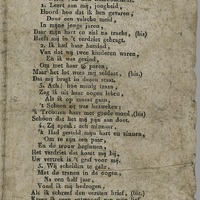 1. Leert aan mij, jongheid,
Hoord hoe dat ik ben gevaren,
Door een valsche meid
In mijne jonge jaren,
Daar mijn hart en ziel na tracht, (bis)
Heeft mij in 't verdriet gebragt.
2. Ik had haar bemind,
Van dat wy twee kinderen waren,
En ik was gezind,
Om met haar te paren,
Maar het lot wees mij soldaat, (bis.)
Dat my bragt in dezen staat.
3. Ach! hoe minig traan
Zag ik uit haar oogen leken
Als ik op moest gaan,
't Scheen zy was bezweken;
'k Troosten haar met goede moed, (bis)
Schoon dat het mij pijn aan doet.
4. Zij sprak: ach minnaer,
'k Had gesteld mijn hart en zinnen,
Om te zijn een paar,
En de trouw beginnen,
Het verdriet dat komt mij by,
Uw vertrek is 't graf voor mij.
5. Wij scheiden te gaêr,
Met de tranen in de oogen,
Na een half jaar,
Vond ik mij bedrogen,
Als ik schreef den eersten brief, (bis)